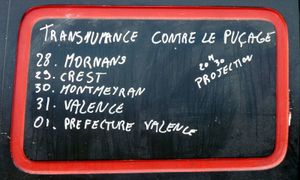 TRANSHUMANCE CONTRE LE PUÇAGE
28. MORNANS
29. CREST
30. MONTMEYRAN
31. VALENCE
01. PREFECTURE VALENCE
20H30
PROJECTION